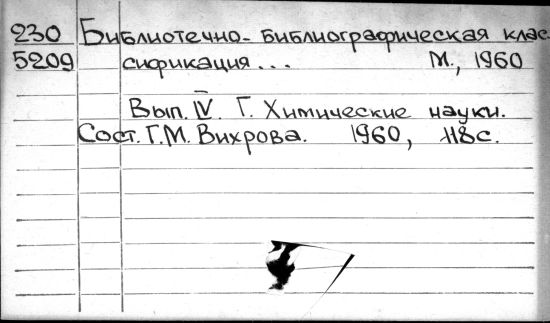 230 Библиотечно-библиографическая клас-
5209 сификация... М., 1960
Вып. IV. Г. Химические науки.
Сост. Г.М. Вихрова. 1960, 118с.